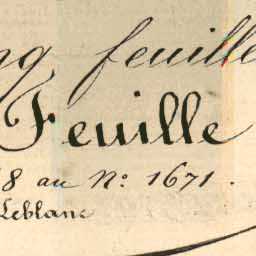 ng feuille
Feuille
8 au No. 1671.
Leblanc